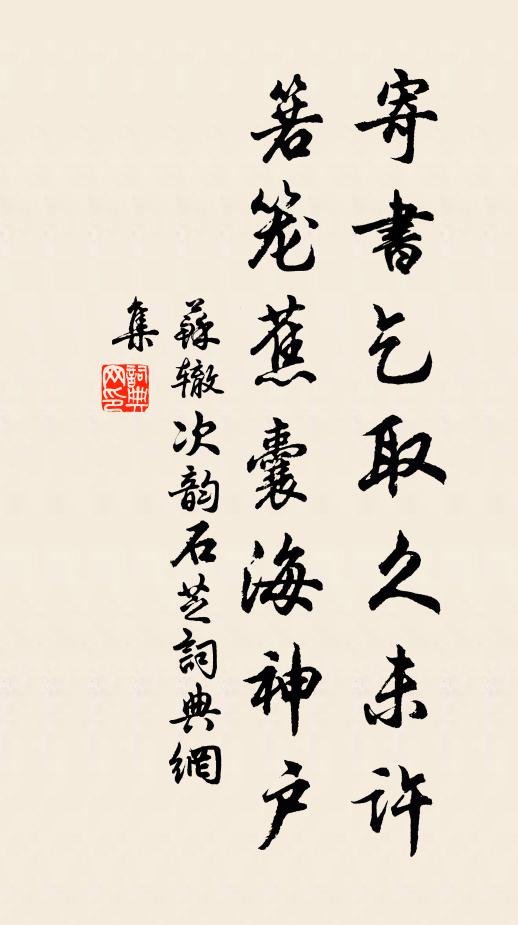 寄書乞取久未許
箬笼蕉囊海神户
蘇辙次韵石芝詞典網
集
詞典网印